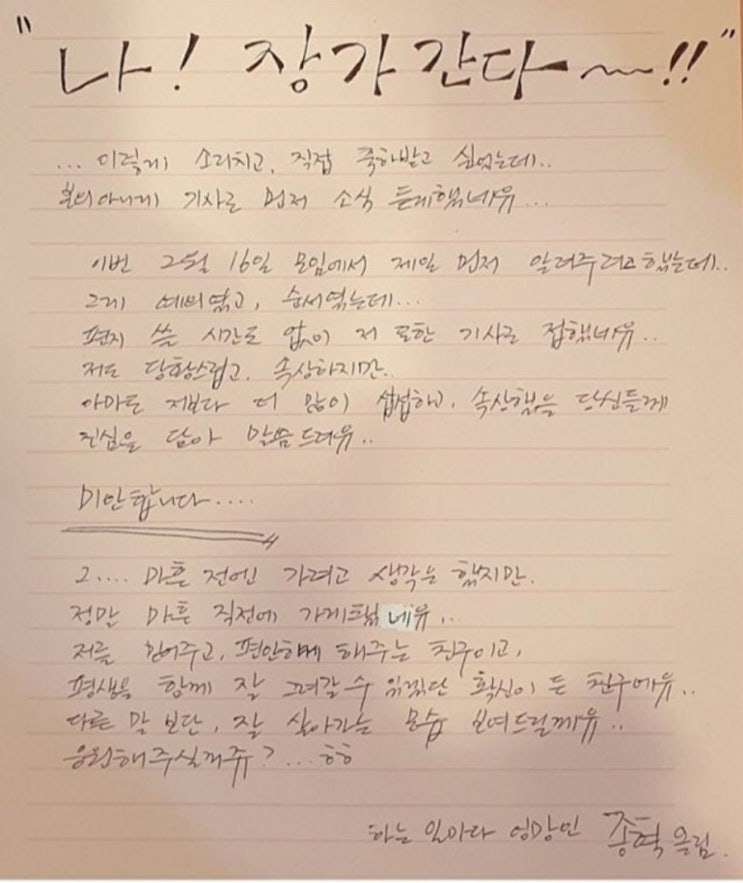 "나! 장가간다~!!"
... 이렇게 소리치고, 직접 축하받고 싶었는데..
본의아니게 기사로 먼저 소식 듣게했네유...
이번 2월 16일 모임에서 제일 먼저 알려주려고했는데..
그게 예의였고, 순서였는데...
편지 쓸 시간도 없이 저 또한 기사로 접했네유..
저도 당황스럽고, 속상하지만..
아마도 저보다 더 많이 섭섭하고, 속상했을 당신들께
진심을 담아 말씀드려유..
미안합니다....
그.... 마흔 전엔 가려고 생각은 했지만.
정말 마흔 직전에 가게됐네유...
저를 믿어주고, 편안하게 해주는 친구이고,
평생을 함께 잘 그려갈 수 있겠단 확신이 든 친구에유..
다른 말 보단, 잘 살아가는 모습 보여드릴께유..
응원해주실꺼쥬?...ㅎㅎ
하는 일마다 엉망인 종혁 올림.